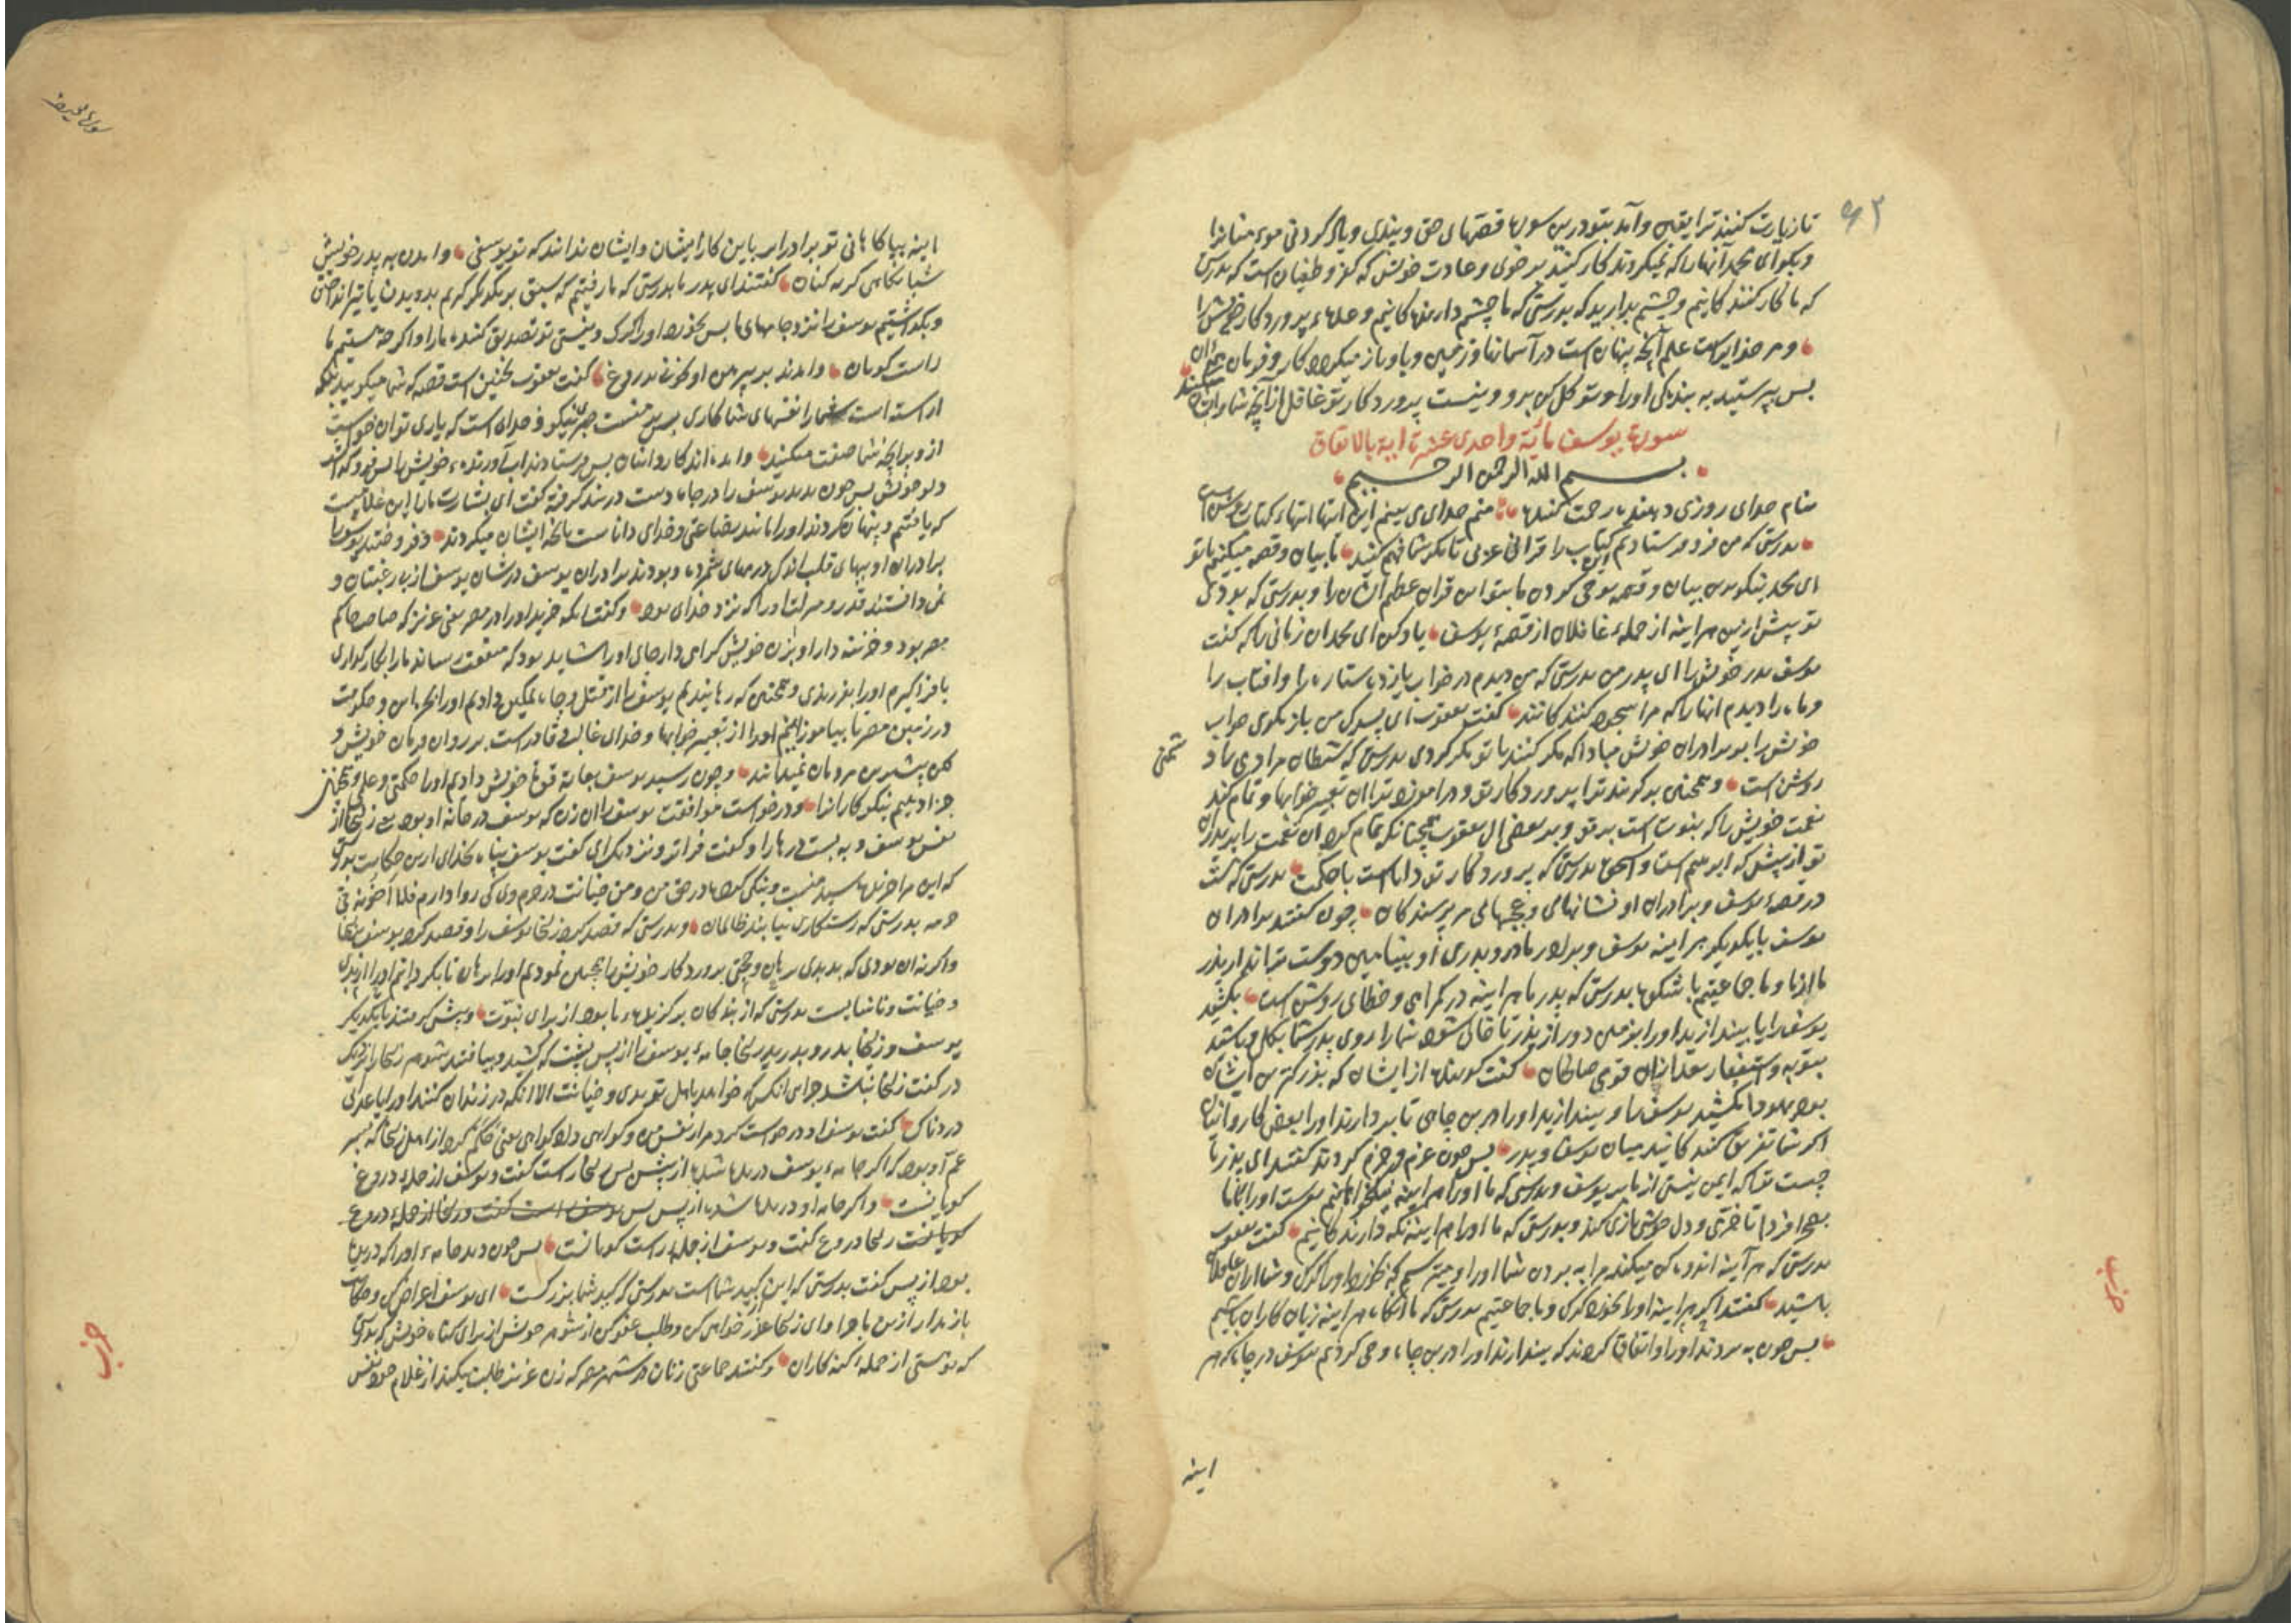 تا زیارت کنند ترا یقین و آمد بتو درین سورة قصتهای حق و پندی و یاد کردنی موء منانرا
و بکو ای محمد آنها را که نمیکروند کار کنید بر خوی و عادت خویش که کفر و طغیان است که بدرستی
که ما کار کنند کانیم و چشم بدارید که بدرستی که ما چشم دارند کانیم و عده پروردکار خویش را
و مر خدایراست علم آنچه پنهان است در آسمانها و زمین و باو باز میکردد کار و فرمان همه آن
پس پرستید به بندکی او را و توکل کن برو و نیست پروردکار تو غافل از آنچه شما
سورة یوسف مایة واحدی عشرة ایة بالاتفاق
بسم الله الرحمن الرحیم
بنام خدای روزی دهنده رحمت کننده منم خدای می بینم این آیتها آیتهاء کتاب روشن است
بدرستی که من فرو فرستادیم این کتاب را قرانی عربی تا مکر شما فهم کنید ما بیان و قصه میکنیم با تو
ای محمد نیکوترین بیان و قصه بوحی کردن ما بتو این قران عظیم الشان را و بدرستی که بودی
تو پیش ازین هر اینه از جمله غافلان از قصهٔ یوسف یاد کن ای محمد ان زمانی را که کفت
یوسف پدر خویش را ای پدر من بدرستی که من دیدم در خواب یازده ستاره را و افتاب را
و ماه را دیدم انها را که مرا سجده کنند کانند کفت یعقوب ای پسرک من باز مکوی خواب
خویش را بر برادران خویش مبادا که مکر کنند با تو مکر کردنی بدرستی که شیطان مر ادمی را د
شمنی
روشن است و همچنین بر کزیند ترا پروردکار تو و در اموزد ترا از تعبیر خوابها و تمام کند
نعمت خویش را که نبوت است بر تو و بر بعضی ال یعقوب همچنانکه تمام کرد ان نعمت را بر پدران
تو از پیش که ابرهیم است و اسحق بدرستی که پروردکار تو دانا است با حکمت بدرستی که هست
در قصهٔ یوسف و برادران او نشانهای و عجبهای مر پرسندکان چون کفتند برادران
یوسف با یکدیکر هر اینه یوسف و برادر مادر و پدری او بنیامین دوست تراند از پدر
ما از ما و ما جماعتیم با شکوه بدرستی که پدر ما هر اینه در کمراهی و خطای روشن است بکشید
یوسف را یا بیندازید او را بزمین دور از پدر تا خالی شود شما را روی پدر شما بکلی و باشید
بتوبه و استغفار بعد از ان قومی صالحان کفت کوینده از ایشان که بزرکترین ایشان
بود یهودا مکشید یوسف را و بیندازید او را در بن چاهی تا بر دارند او را بعض کاروانیان
اکر شما تفریق کنند کانید میان یوسف و پدر پس چون عزم و جزم کردند کفتند ای پدر ما
چیست ترا که ایمن نیستی از ما بر یوسف و بدرستی که ما او را هر اینه نیکخواهانیم بفرست او را با ما
بصحرا فردا تا خرمی و دل خوشی بازی کند و بدرستی که ما او را هر اینه نکه دارند کانیم کفت یعقوب
بدرستی که هر آینه اندوهکن میکند مرا به بردن شما او را و میترسم که بخورد او را کرک و شما ازان غافلان
باشید کفتند اکر هر اینه او را بخورد کرک و ما جماعتیم بدرستی که ما انکاه هر اینه زیان کاران باشیم
پس چون به بردند او را و اتفاق کردند که بیندازند او را در بن چاه و وحی کردیم بیوسف در چاه که هر
اینه
سورة یوسف
اینه بیاکاهانی تو برادرانرا باین کار ایشان و ایشان ندانند که تو یوسفی و امدند به پدر خویش
شبانکاهی کریه کنان کفتند ای پدر ما بدرستی که ما رفتیم که سبق بر یکدیکر کریم بدویدن یا تیر انداختن
و بکذاشتیم یوسف را نزد جامهای ما پس بخورد او را کرک و نیستی تو تصدیق کننده ما را و اکر چه هستیم ما
راست کویان و امدند بر پیرهن او بخونی بدروغ کفت یعقوب نچنین است قصه که شما میکویید بلکه
اراسته است شما را نفسهای شما کاری پس بر منست صبری نیکو و خدای است که یاری توان خواست
ازو بر انچه شما صفت میکنید و امده اند کاروانیان پس فرستادند آب آورنده خویش را پس فرو کذاشت
دلو خویش پس چون بدید یوسف را در چاه دست در بند کرفته کفت ای بشارت مارا این غلامیست
که یافتیم و پنهان کردند او را مانند بضاعتی و خدای داناست بانچه ایشان میکردند و فروختند یوسف را
برادران او ببهای قلب اندک درمهای شمرده و بودند برادران یوسف در شان یوسف از بی رغبتان و
نمی دانستند قدر و منزلت او را که نزد خدای بود و کفت انکه خرید او را در مصر یعنی عزیز که صاحب حاکم
مصر بود و خزینه دار او بزن خویش کرامی دار جای او را شاید بود که منفعت رساند ما را بکار کذاری
یا فرا کیریم او را بفرزندی و همچنین که رهانیدیم یوسف را از قتل و چاه تمکین دادیم او را بجاه و حکومت
در زمین مصر تا بیاموزانیم او را از تعبیر خوابها و خدای غالب و قادر است بر روان فرمان خویش و
لکن بیشترین مردمان نمیدانند و چون رسید یوسف بغایة قوة خویش دادیم او را حکمتی و علمی و همچنین
جزا دهیم نیکوکارانرا و درخواست موافقت یوسف را ان زن که یوسف در خانه او بود یعنی زلیخا از
نفس یوسف و به بست درها را و کفت فراتر و نزدیک ای کفت یوسف پناه بخدای ازین حکایت
که این مرا خریده سید منست و نیکی کرده در حق من و من خیانت در حرم وی کی روا دارم
بدرستی که رستکاری نیابند ظالمان و بدرستی که قصد کرد زلیخا یوسف را و قصد کرد یوسف
واکر نه ان بودی که بدیدی برهان و حجتی پروردکار خویش را همچنین نمودیم او را برهان تا بکردانیم ازو
و خیانت و ناشایست بدرستی که از بندکان برکزیده ما بود از برای نبوت و پیشی کرفتند بایکدیکر
یوسف و زلیخا بدر و بدرید زلیخا جامه یوسف را از پس پشت که کشید و بیافتند شوهر زلیخا را نزدیک
در کفت زلیخا نباشد جزای انکس که خواهد باهل تو بدی و خیانت الا انکه در زندان کنند او را یا عذابی
دردناک کفت یوسف او درخواست کرد مرا از نفس من و کواهی داد کواهی یعنی حکم کرد از اهل زلیخا که پسر
عم او بود که اکر جامهٔ یوسف دریده شده از پیش پس زلیخا راست کفت و یوسف از جمله دروغ
کویانست و اکر جامه او دریده شده از پس پس یوسف است کفت و زلیخا از جملهٔ دروغ
کویانست زلیخا دروغ کفت و یوسف از جمله راست کویانست پس چون دید جامهٔ او را که دریده
بود از پس کفت بدرستی که این کید شما است بدرستی که کید شما بزرکست ای یوسف اعراض کن و حکایت
باز مدار ازین ماجرا و ای زلیخا عذر خواهی کن و طلب عفو کن از شوهر خویش از برای کناه خویش که بدرستی
که تو هستی از جمله کنه کاران و کفتند جماعتی زنان در شهر مصر که زن عزیز طلب میکند از غلام خود نفس
حزب
حزب